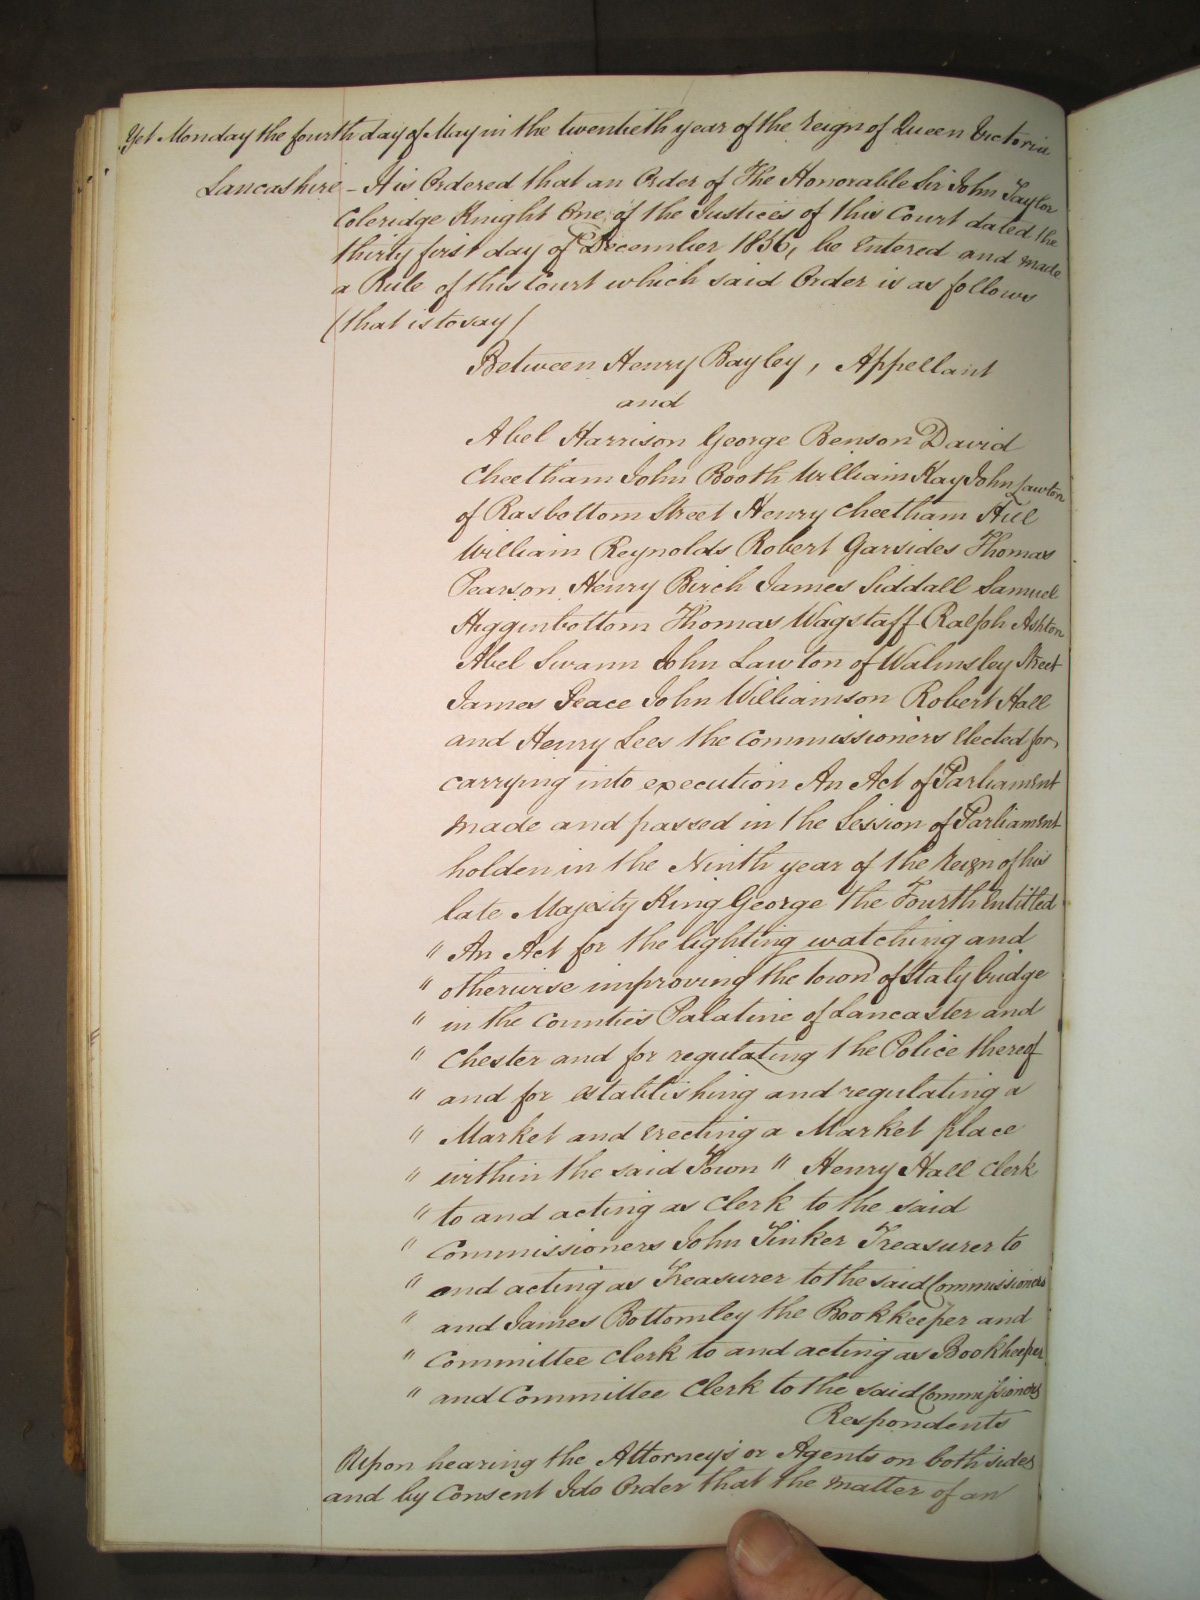 Yet Monday the fourth day of May in the twentieth year of the Reign of Queen Victoria
Lancashire - It is Ordered that an Order of The Honorable Sir John Taylor
Coleridge Knight One of the Justices of this Court dated the
thirty first day of December 1856, be Entered and made
a Rule of this Court which said Order is as follows
(that is to say)
Between Henry Bayley, Appellant
and
Abel Harrison George Benson David
Cheetham John Booth William Kay John Lawton
of Rasbottom Street Henry Cheetham Hill
William Reynolds Robert Garsides Thomas
Pearson Henry Birch James Siddall Samuel
Higginbottom Thomas Wagstaff Ralph Ashton
Abel Swann John Lawton of Walmsley Street
James Peace John Williamson Robert Hall
and Henry Lees the Commissioners Elected for
carrying into execution An Act of Parliament
made and passed in the Session of Parliament
holden in the Ninth year of the Reign of his
late Majesty King George the Fourth Entitled
" An Act for the lighting watching and
" otherwise improving the town of Stalybridge
" in the Counties Palatine of Lancaster and
" Chester and for regulating the Police thereof
" and for establishing and regulating a
" Market and Erecting a Market place
" within the said Town " Henry Hall Clerk
" to and acting as Clerk to the said
" Commissioners John Tinker Treasurer to
" and acting as Treasurer to the said Commissioners
" and James Bottomley the Bookkeeper and
" Committee Clerk to and acting as Bookkeeper
" and Committee Clerk to the said Commissioners
Respondents
Upon hearing the Attorneys or Agents on both sides
and by Consent I do Order that the matter of an